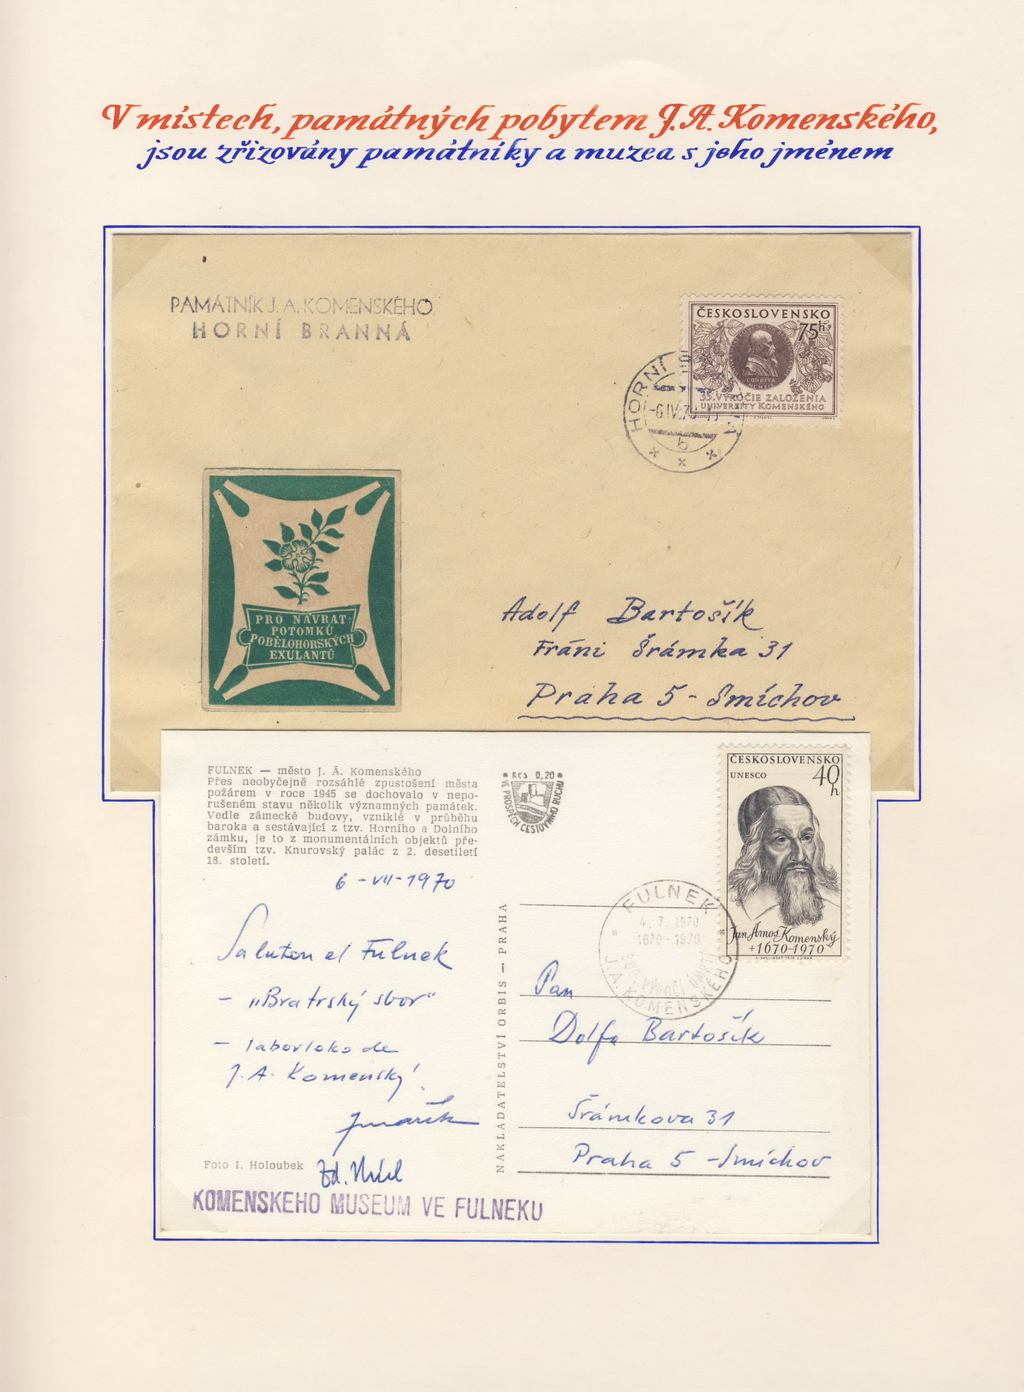 V místech, památných pobytem J.A. Komenského,
jsou zřizovány památníky a muzea s jeho jménem
PAMÁTNÍK J. A. KOMENSKÉHO
HORNÍ BRANNÁ
ČESKOSLOVENSKO
75h
35. VÝROČIE ZALOŽENIA
UNIVERZITY KOMENSKÉHO
HORNÍ
-6 IV. 70
b
PRO NÁVRAT
POTOMKŮ
POBĚLOHORSKÝCH
EXULANTŮ
Adolf Bartošík
Fráni Šrámka 31
Praha 5 - Smíchov
FULNEK — město J. A. Komenského
Přes neobyčejně rozsáhlé zpustošení města
požárem v roce 1945 se dochovalo v nepo-
rušeném stavu několik významných památek.
Vedle zámecké budovy, vzniklé v průběhu
baroka a sestávající z tzv. Horního a Dolního
zámku, je to z monumentálních objektů pře-
devším tzv. Knurovský palác z 2. desetiletí
18. století.
Kčs 0,20
VE PROSPĚCH CESTOVNÍHO RUCHU
ČESKOSLOVENSKO
UNESCO
40h
Jan Ámos Komenský
+1670-1970
FULNEK
4. 7. 1970
1670 - 1970
300. VÝROČÍ ÚMRTÍ
J. A. KOMENSKÉHO
6 - VII - 1970
Saluton el Fulnek
- „Bratrský sbor"
- laborloko de
J. A. Komenský!
Zd.
Foto I. Holoubek
NAKLADATELSTVÍ ORBIS — PRAHA
Pan
Dolfa Bartošík
Šrámkova 31
Praha 5 - Smíchov
KOMENSKEHO MUSEUM VE FULNEKU